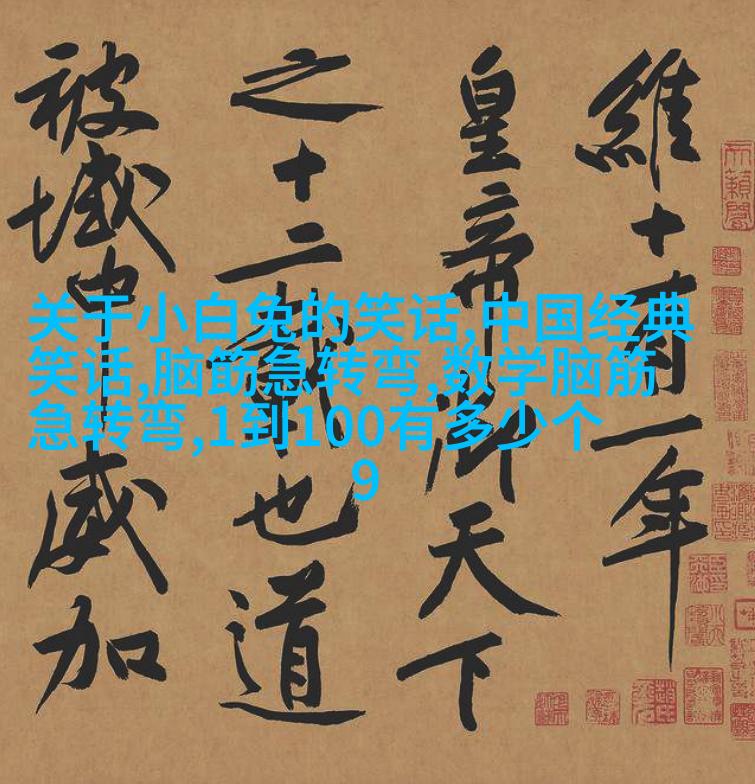 維十有一年
皇帝御天下
之十二載也道
被域中威加
关于小白兔的笑话,中国经典
笑话,脑筋急转弯,数学脑筋
急转弯,1到100有多少个
9